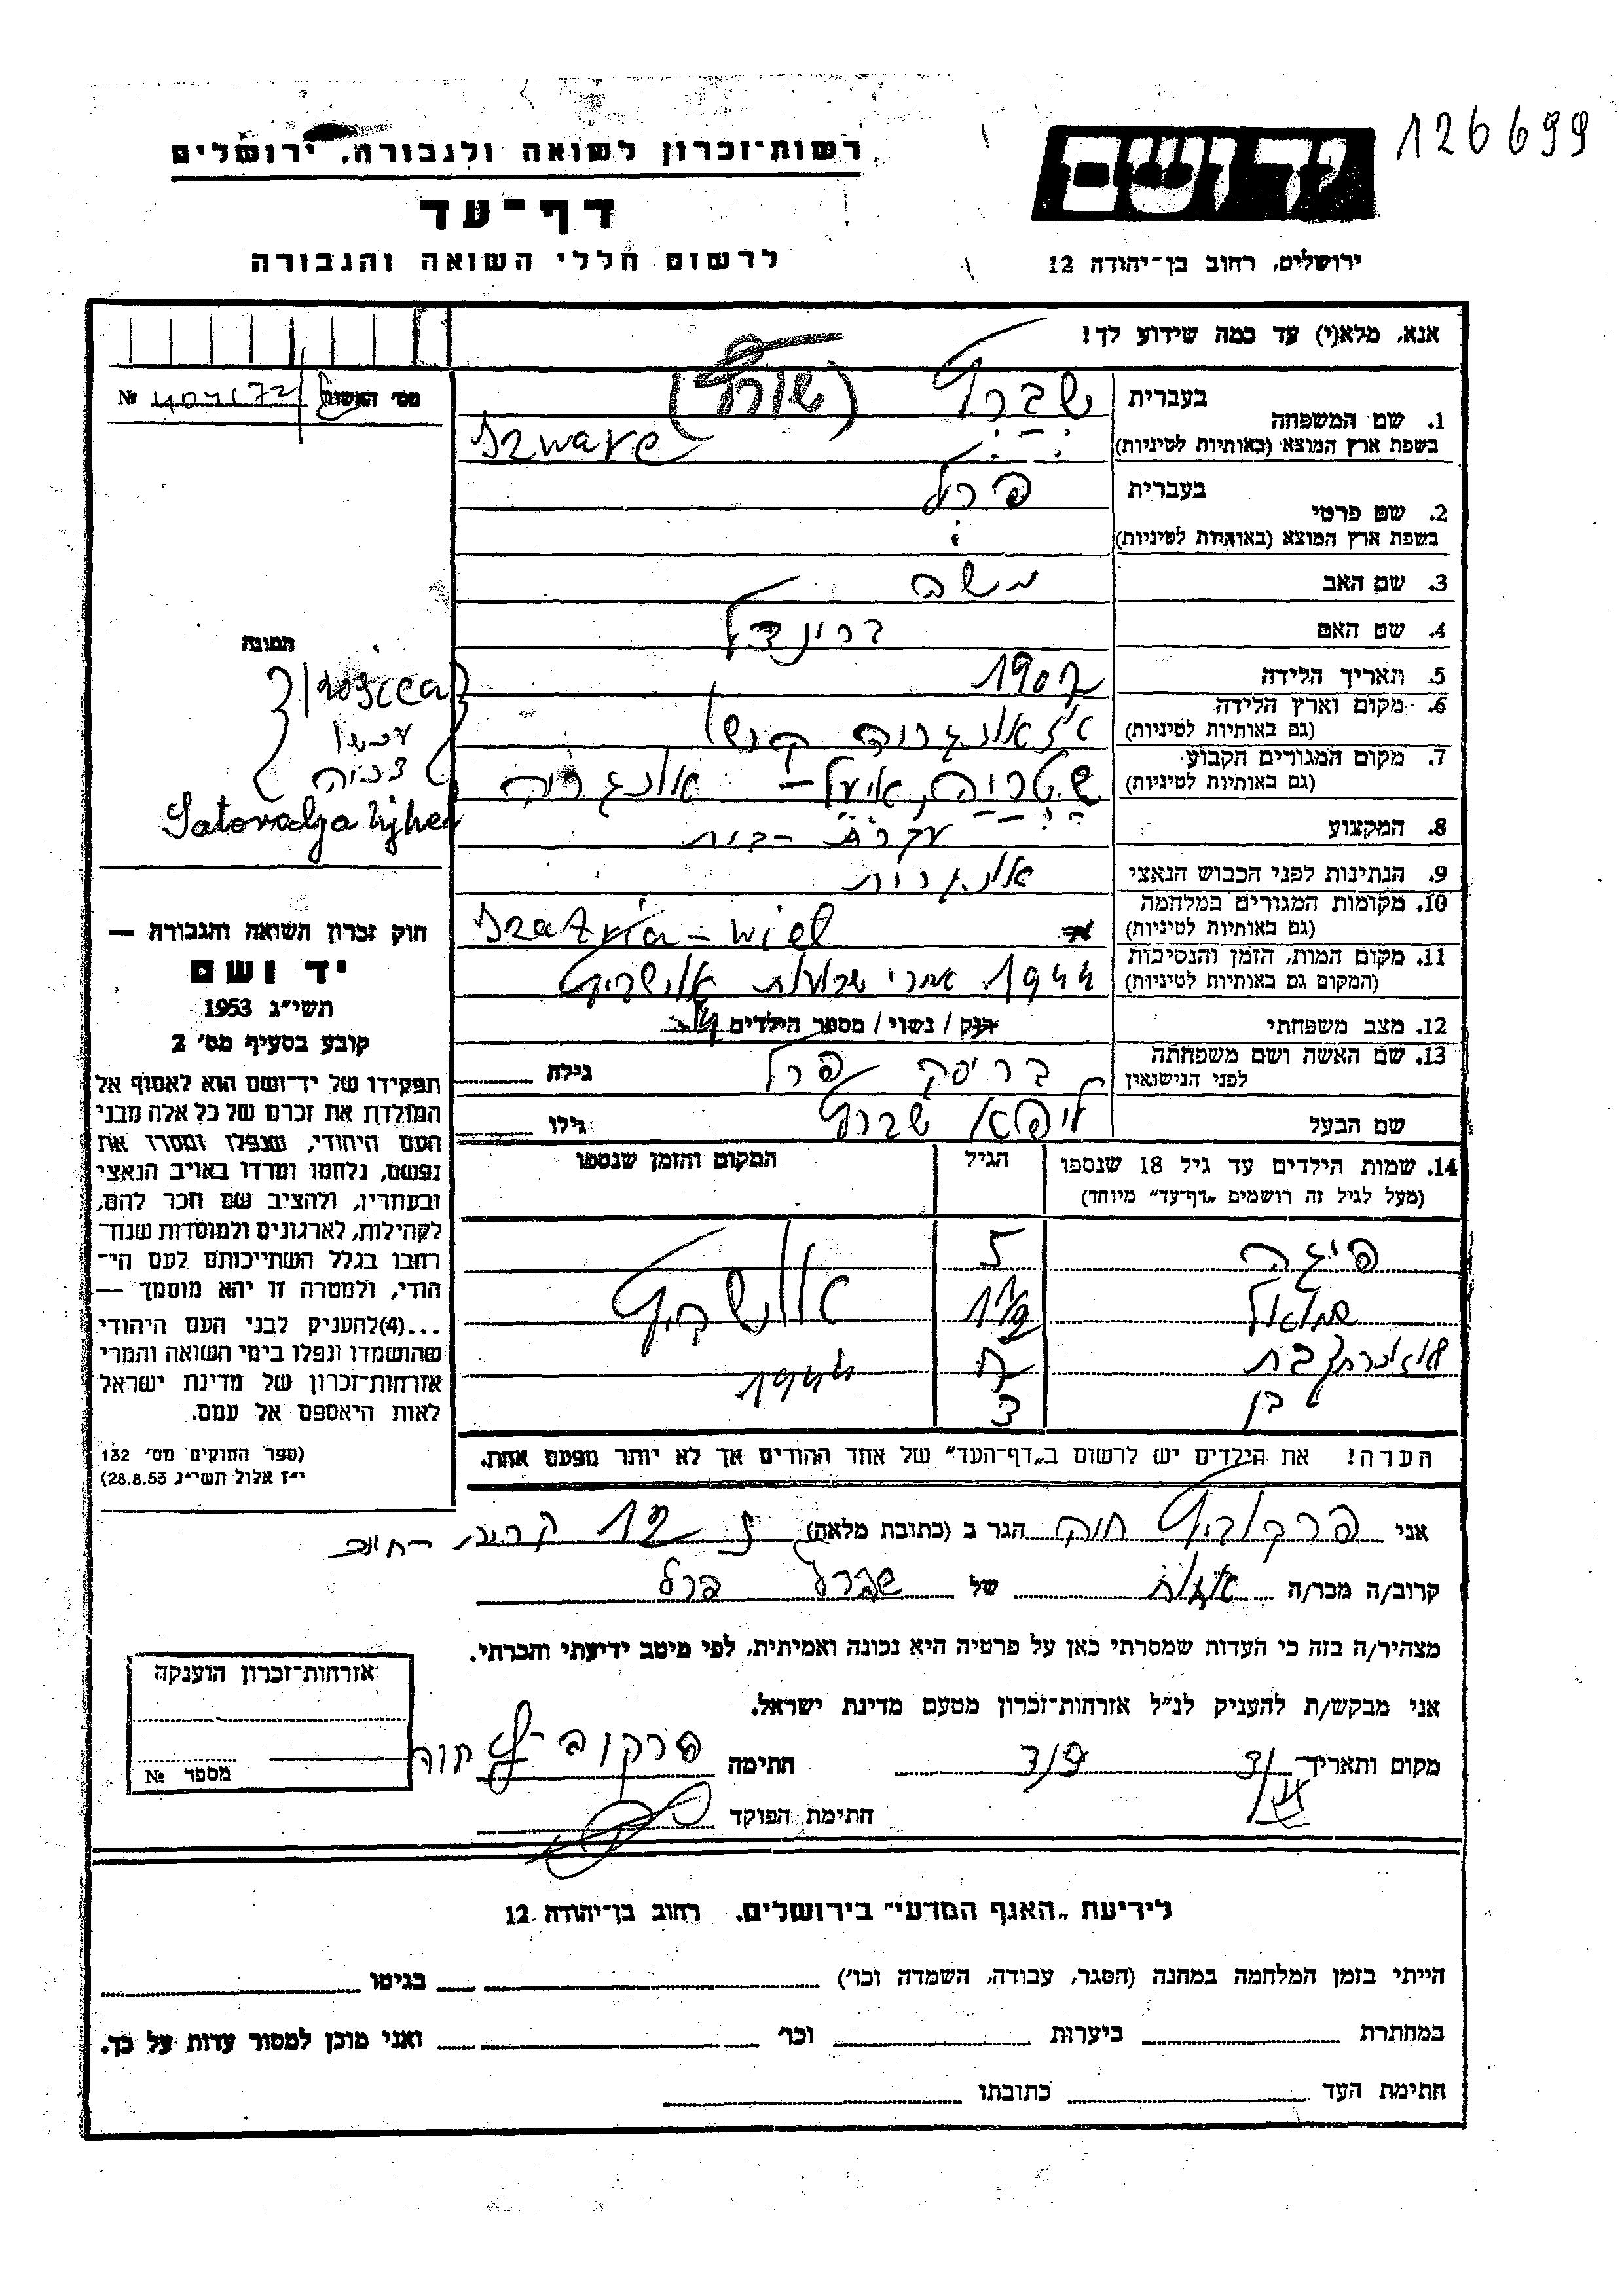 126699
רשות־זכרון לשואה ולגבורה, ירושלים
דף־עד
לרשום חללי השואה והגבורה
יד ושם
ירושלים, רחוב בן־יהודה 12
אנא, מלא(י) עד כמה שידוע לך!
מס' האשה №
1. שם המשפחה
בעברית
בשפת ארץ המוצא (באותיות לטיניות)
Szware
2. שם פרטי
בעברית פרל
בשפת ארץ המוצא (באותיות לטיניות)
3. שם האב משה
4. שם האם בריינדל
5. תאריך הלידה 1907
6. מקום וארץ הלידה
(גם באותיות לטיניות)
7. מקום המגורים הקבוע
(גם באותיות לטיניות) אונגריה
8. המקצוע עקרת-בית
9. הנתינות לפני הכבוש הנאצי אונגרית
10. מקומות המגורים במלחמה
(גם באותיות לטיניות)
11. מקום המות, הזמן והנסיבות
(המקום גם באותיות לטיניות) 1944 אחרי שבועות אושביץ
12. מצב משפחתי רוק / נשוי / מספר הילדים
13. שם האשה ושם משפחתה
לפני הנישואין פרל גילה
שם הבעל ליפא גילו
תמונה
Satoraljaujhel
חוק זכרון השואה והגבורה —
יד ושם
תשי״ג 1953
קובע בסעיף מס' 2
תפקידו של יד־ושם הוא לאסוף אל
המולדת את זכרם של כל אלה מבני
העם היהודי, שנפלו ומסרו את
נפשם, נלחמו ומרדו באויב הנאצי
ובעוזריו, ולהציב שם וזכר להם,
לקהילות, לארגונים ולמוסדות שנח־
רבו בגלל השתייכותם לעם הי־
הודי, ולמטרה זו יהא מוסמך —
...(4) להעניק לבני העם היהודי
שהושמדו ונפלו בימי השואה והמרי
אזרחות־זכרון של מדינת ישראל
לאות היאספם אל עמם.
(ספר החוקים מס' 132
י״ז אלול תשי״ג 28.8.53)
14. שמות הילדים עד גיל 18 שנספו
(מעל לגיל זה רושמים „דף־עד״ מיוחד)
הגיל
המקום והזמן שנספו
פיגה 5
שמואל 11/2 אושביץ
בת 7 1944
בן 3
הערה! את הילדים יש לרשום ב„דף־העד״ של אחד ההורים אך לא יותר מפעם אחת.
אני פרקוביץ חוה הגר ב (כתובת מלאה) 12
קרוב/ה מכר/ה אחות של פרל
מצהיר/ה בזה כי העדות שמסרתי כאן על פרטיה היא נכונה ואמיתית, לפי מיטב ידיעתי והכרתי.
אני מבקש/ת להעניק לנ״ל אזרחות־זכרון מטעם מדינת ישראל.
מקום ותאריך חתימה פרקוביץ חוה
חתימת הפוקד
אזרחות־זכרון הוענקה
מספר №
לידיעת „האגף המדעי״ בירושלים, רחוב בן־יהודה 12
הייתי בזמן המלחמה במחנה (הסגר, עבודה, השמדה וכו') בגיטו
במחתרת ביערות וכו' ואני מוכן למסור עדות על כך.
חתימת העד כתובתו